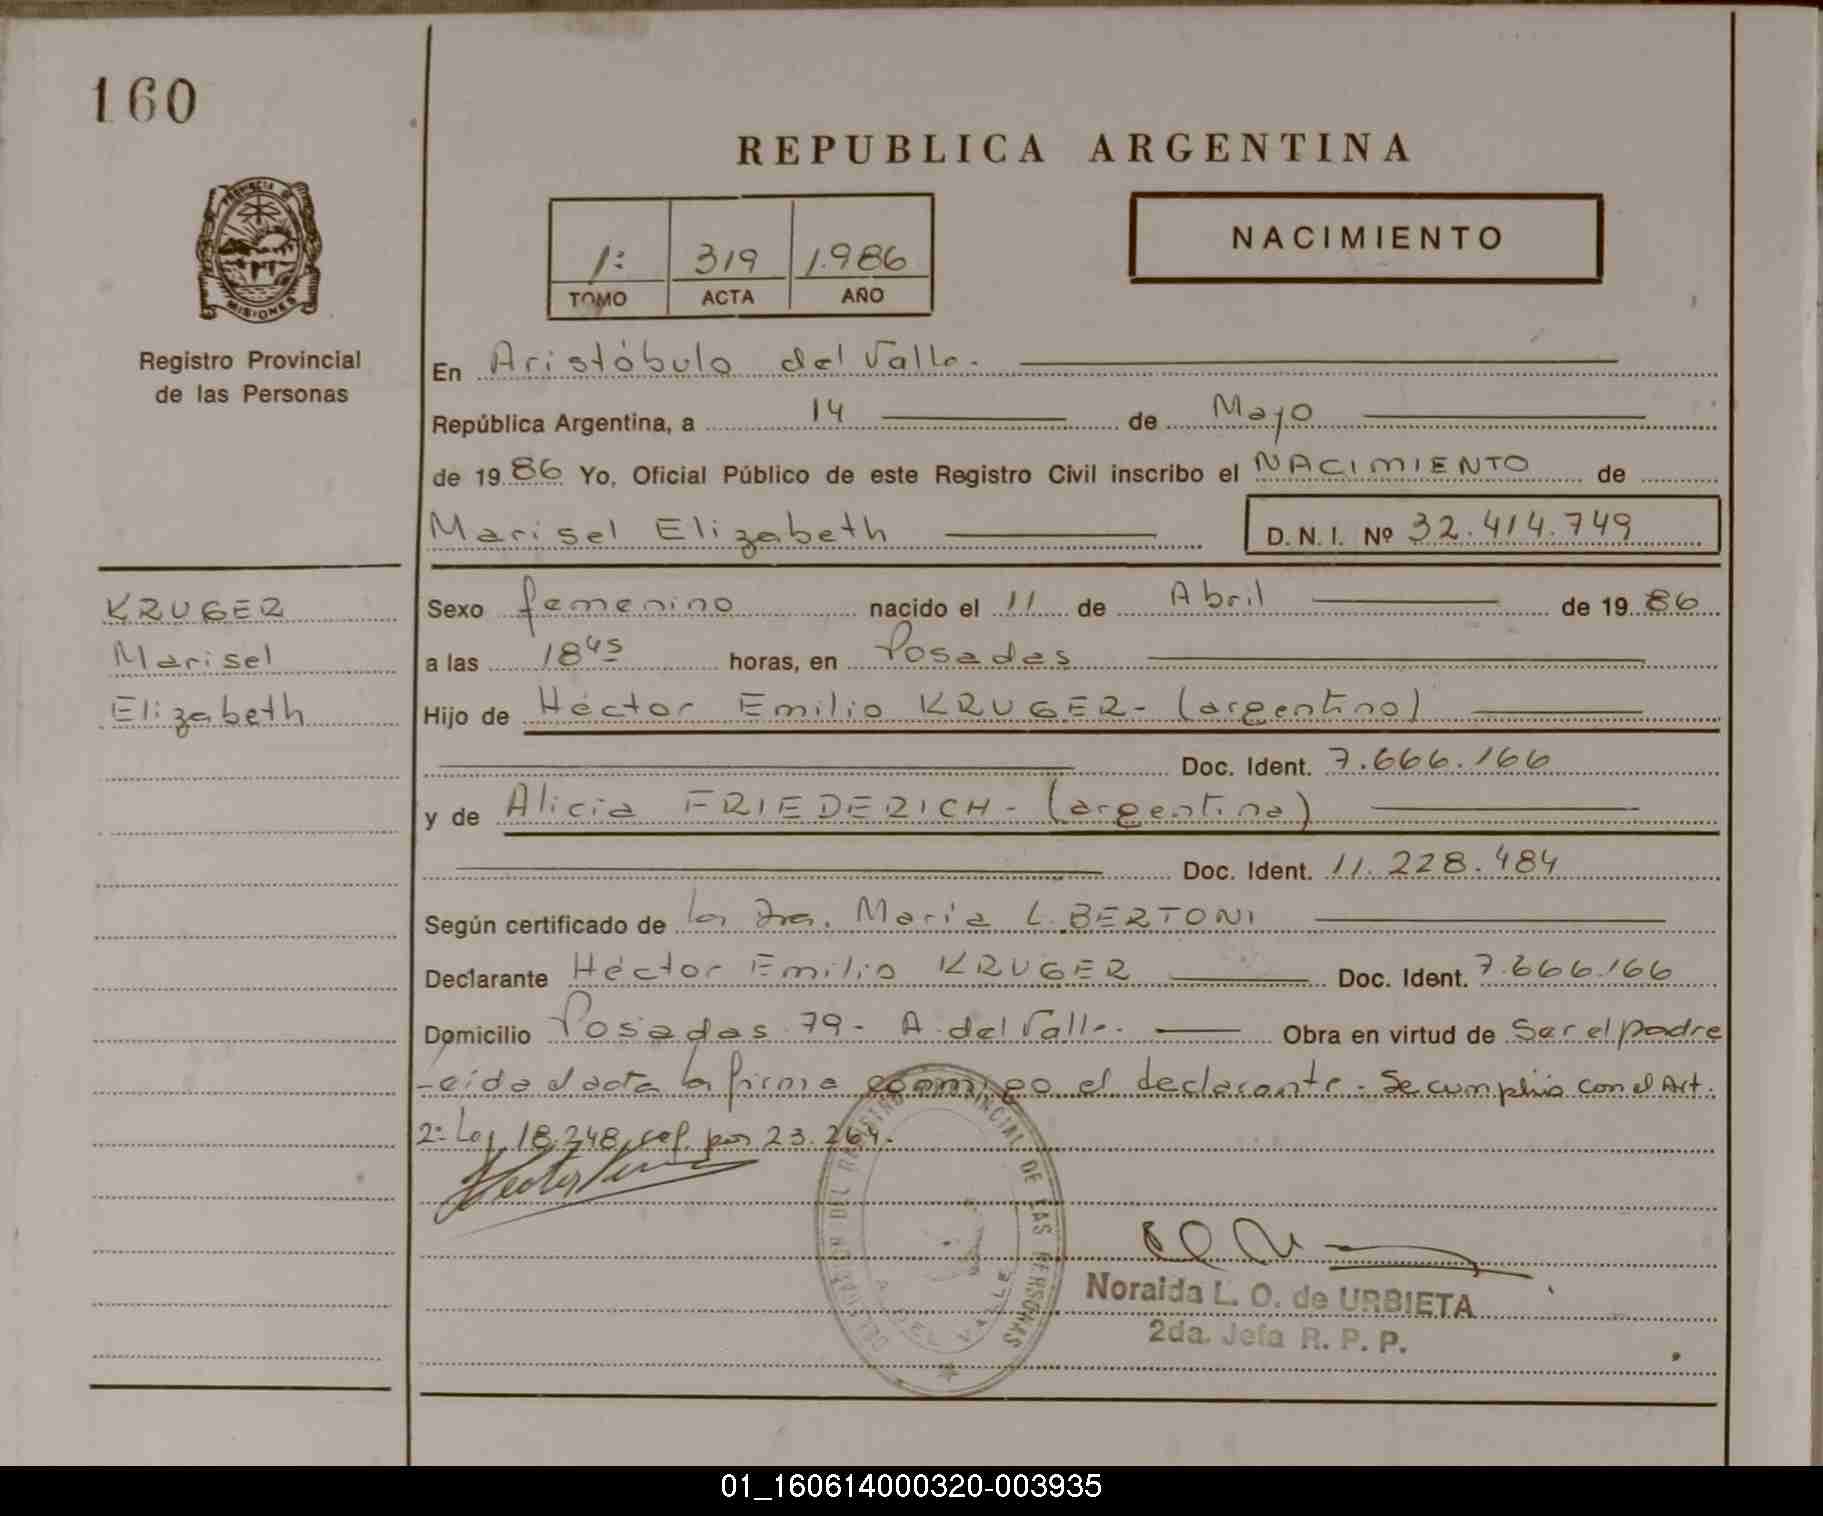 160
REPUBLICA ARGENTINA
PROVINCIA DE
MISIONES
1: 319 1.986
TOMO ACTA AÑO
NACIMIENTO
Registro Provincial
de las Personas
En Aristóbulo del Valle.
República Argentina, a 14 de Mayo
de 19 86 Yo, Oficial Público de este Registro Civil inscribo el NACIMIENTO de
Marisel Elizabeth D.N.I. Nº 32.414.749
KRUGER
Marisel
Elizabeth
Sexo femenino nacido el 11 de Abril de 19 86
a las 18 45 horas, en Posadas
Hijo de Héctor Emilio KRUGER- (argentino)
Doc. Ident. 7.666.166
y de Alicia FRIEDERICH- (argentina)
Doc. Ident. 11.228.484
Según certificado de la Dra. María L. BERTONI
Declarante Héctor Emilio KRUGER Doc. Ident. 7.666.166
Domicilio Posadas 79- A. del Valle. Obra en virtud de Ser el padre
-eída el acta la firma conmigo el declarante- Se cumplió con el Art.
2: Ley 18.248 ref. por 23.264.
DELEGACION DEL REGISTRO PROVINCIAL DE LAS PERSONAS
A. DEL VALLE
Noraida L. O. de URBIETA
2da. Jefa R. P. P.
01_160614000320-003935